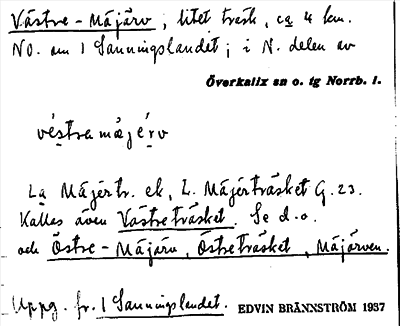 Västre-Måjärv, litet träsk, ca 4 km.
NO. om 1 Sanningslandet; i N. delen av
Överkalix sn o. tg Norrb. l.
véstra måjérv
La Måjértr. ek, L. Måjérträsket G. 23.
Kallas även Västreträsket. Se d.o.
och Östre-Måjärv, Östreträsket, Måjärven.
Uppg. fr. 1 Sanningslandet. EDVIN BRÄNNSTRÖM 1937